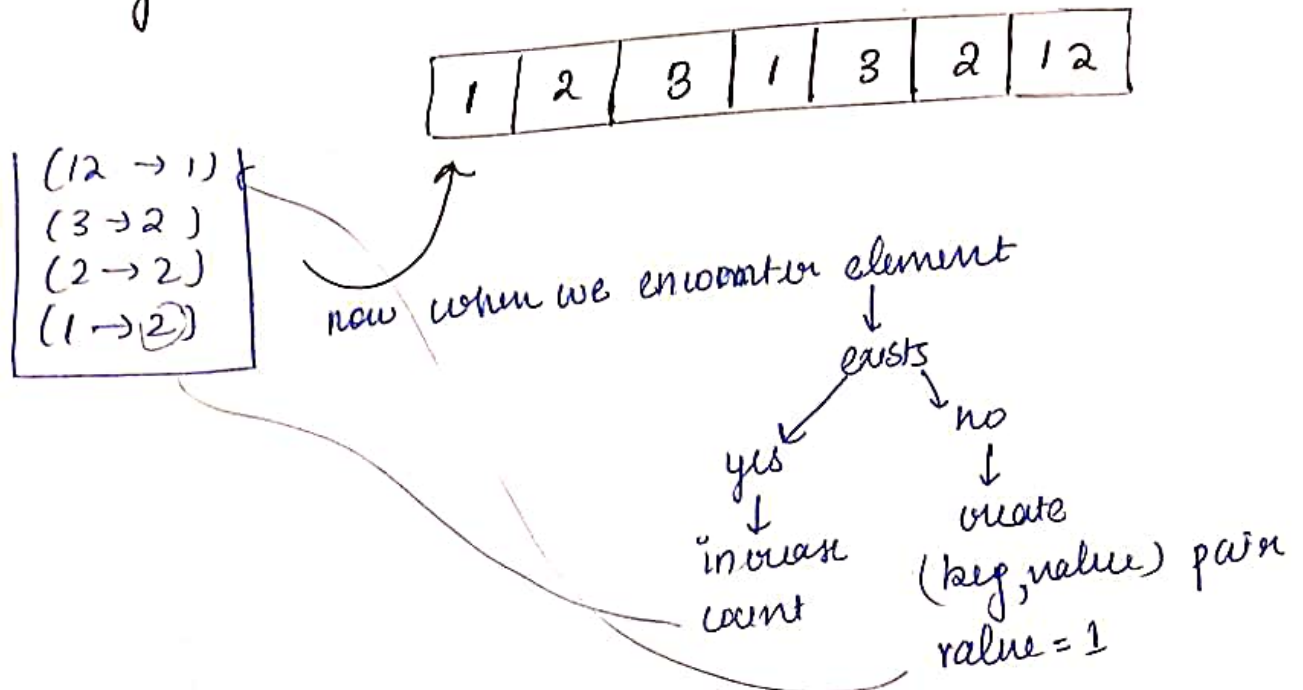 1 2 3 1 3 2 12
(12 → 1)
(3 → 2)
(2 → 2)
(1 → 2)
now when we encounter element
↓
exists
yes no
↓ ↓
increase create
count (key, value) pair
value = 1